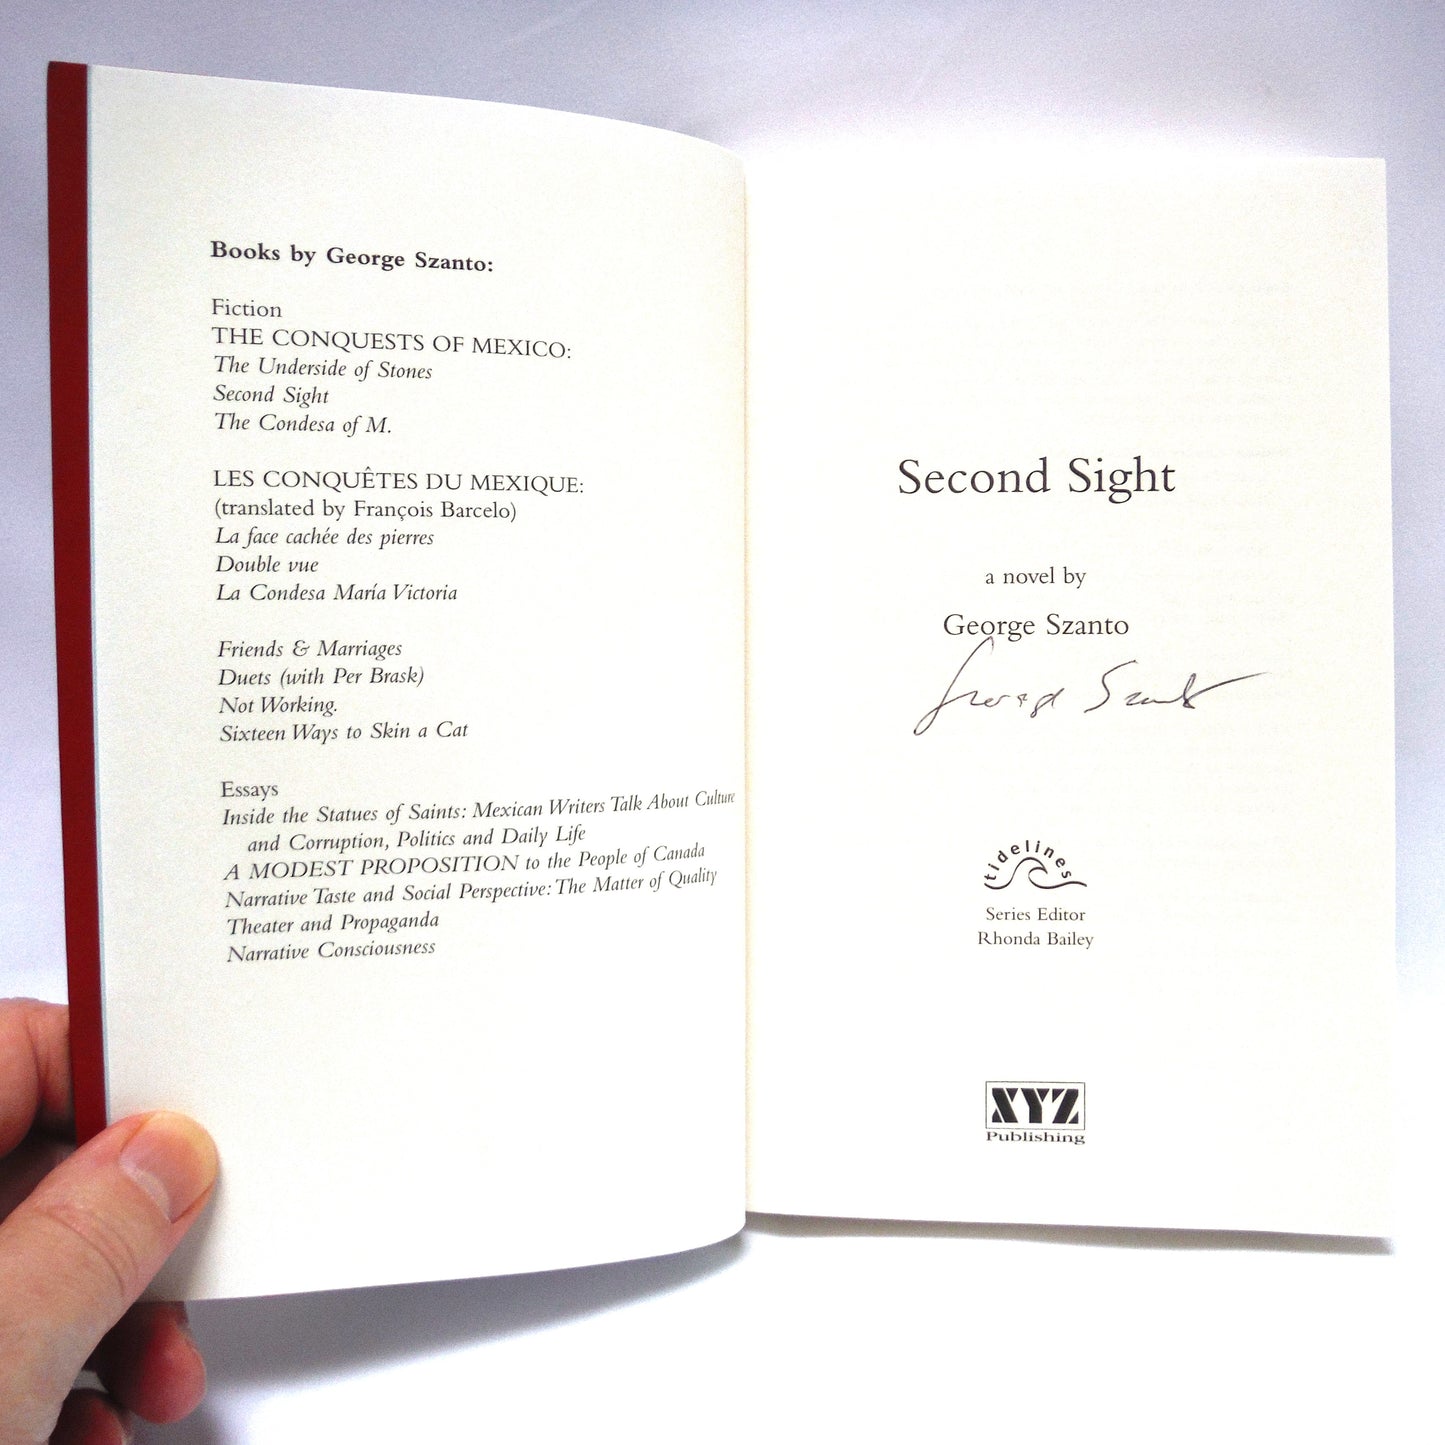 Books by George Szanto:
Fiction
THE CONQUESTS OF MEXICO:
The Underside of Stones
Second Sight
The Condesa of M.
LES CONQUÊTES DU MEXIQUE:
(translated by François Barcelo)
La face cachée des pierres
Double vue
La Condesa María Victoria
Friends & Marriages
Duets (with Per Brask)
Not Working.
Sixteen Ways to Skin a Cat
Essays
Inside the Statues of Saints: Mexican Writers Talk About Culture
and Corruption, Politics and Daily Life
A MODEST PROPOSITION to the People of Canada
Narrative Taste and Social Perspective: The Matter of Quality
Theater and Propaganda
Narrative Consciousness
Second Sight
a novel by
George Szanto
George Szanto
tidelines
Series Editor
Rhonda Bailey
XYZ
Publishing